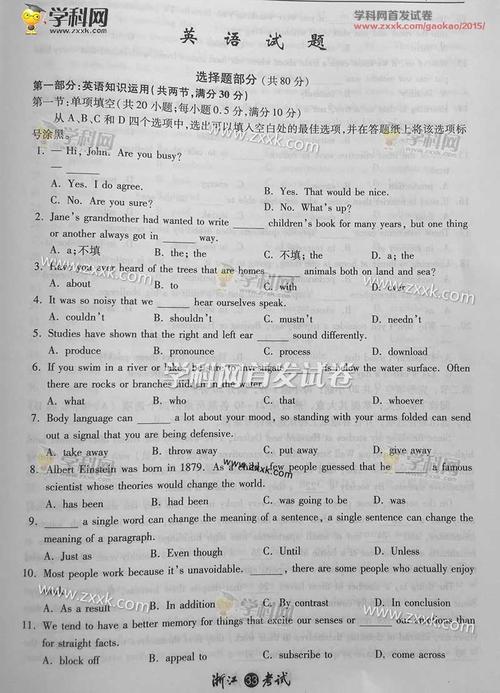 学科网
WWW.ZXXK.COM
学科网首发试卷
www.zxxk.com/gaokao/2015/
英 语 试 题
选择题部分 (共 80 分)
第一部分:英语知识运用(共两节,满分30分)
第一节:单项填空(共 20 小题;每小题0.5分,满分10分)
从 A、B、C 和 D 四个选项中,选出可以填入空白处的最佳选项,并在答题纸上将该选项标
号涂黑。
1. — Hi, John. Are you busy?
— ______
A. Yes. I do agree.
B. Yes. That would be nice.
C. No. Are you sure?
D. No. What's up?
2. Jane's grandmother had wanted to write ______ children's book for many years, but one thing
or another always got in ______ way.
A. a;不填
B. the; the
C. 不填; the
D. a; the
3. Have you ever heard of the trees that are homes ______ animals both on land and sea?
A. about
B. to
C. with
D. over
4. It was so noisy that we ______ hear ourselves speak.
A. couldn't
B. shouldn't
C. mustn't
D. needn't
5. Studies have shown that the right and left ear ______ sound differently.
A. produce
B. pronounce
C. process
D. download
学科网首发试卷
6. If you swim in a river or lake, be sure to investigate ______ is below the water surface. Often
there are rocks or branches hidden in the water.
A. what
B. who
C. that
D. whoever
7. Body language can ______ a lot about your mood, so standing with your arms folded can
send out a signal that you are being defensive.
A. take away
B. throw away
C. put away
D. give away
8. Albert Einstein was born in 1879. As a child, few people guessed that he ______ a famous
scientist whose theories would change the world.
A. has been
B. had been
C. was going to be
D. was
9. ______ a single word can change the meaning of a sentence, a single sentence can change the
meaning of a paragraph.
A. Just as
B. Even though
C. Until
D. Unless
10. Most people work because it's unavoidable. ______, there are some people who actually enjoy
work.
A. As a result
B. In addition
C. By contrast
D. In conclusion
11. We tend to have a better memory for things that excite our senses or ______ our emotions than
for straight facts.
A. block off
B. appeal to
C. subscribe to
D. come across
浙江 33 考试